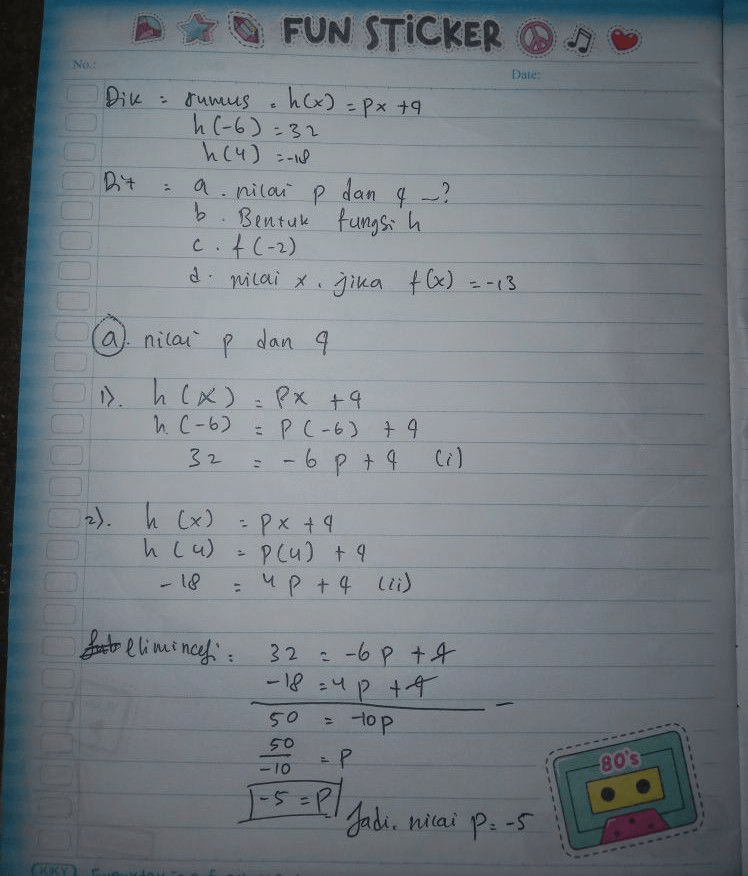 FUN STICKER
No.:
Date:
Dik = rumus . h(x) = px + q
h(-6) = 32
h(4) = -18
Dit = a . nilai p dan q -?
b . Bentuk fungsi h
c . f(-2)
d . nilai x . jika f(x) = -13
a. nilai p dan q
1). h(x) = px + q
h.(-6) = P(-6) + q
32 = -6p + q (i)
2). h(x) = px + q
h(4) = p(4) + q
-18 = 4p + q (ii)
eliminasi : 32 = -6p + q
-18 = 4p + q
50 = -10p -
50
-10 = P
-5 = P
Jadi. nilai p = -5
80's